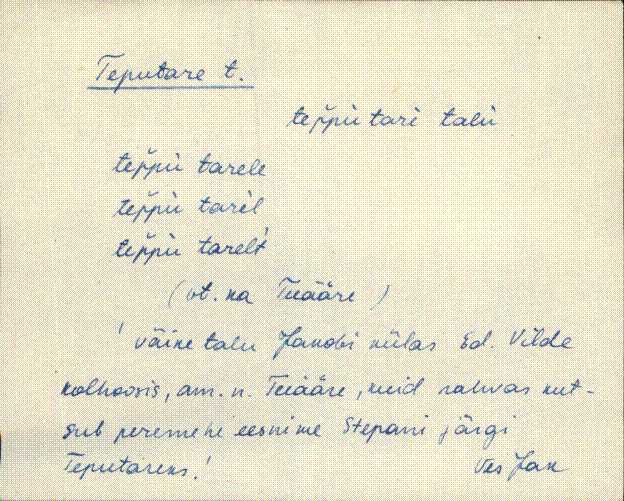 Teputare t.
teppù tarè talù
teppù tarele
teppù tarèl
teppù tarelt
(vt. ka Tiiääre)
! väike talu Jakobi külas Ed. Vilde
kolhoosis, am. n. Tiiääre, kuid rahvas kut-
sub peremehe eesnime Stepani järgi
Teputareks!
Jak